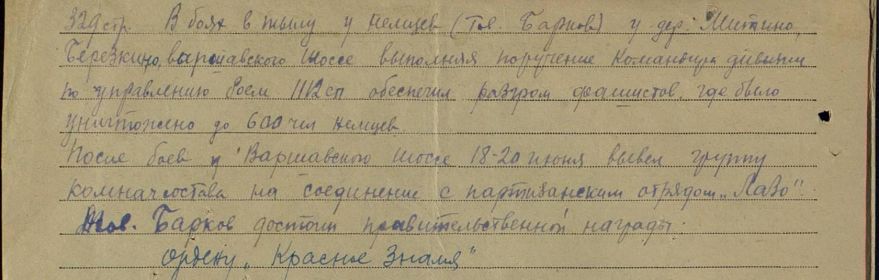 329 стр. В боях в тылу у немцев (тов. Барков) у дер. Митино,
Березкино, варшавского шоссе выполняя поручение командира дивизии
по управлению боем 1112 сп обеспечил разгром фашистов, где было
уничтожено до 600 чел немцев
После боев у Варшавского шоссе 18-20 июня вывел группу
комначсостава на соединение с партизанским отрядом „Лазо"
Тов. Барков достоин правительственной награды:
ордену „Красное Знамя"